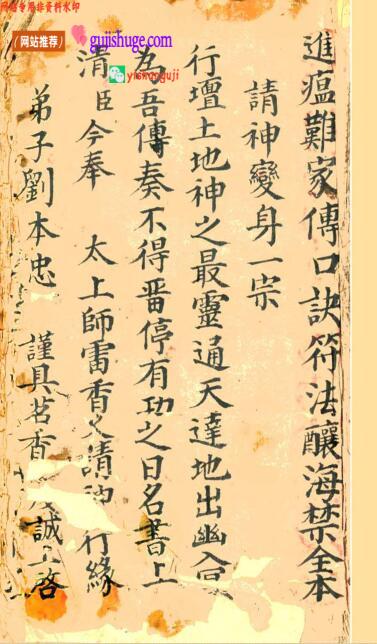 网站专用非资料水印
(网站推荐)
gujishuge.com
yishanguji
進瘟難家傳口訣符法釀海禁全本
請神變身一宗
行壇土地神之最靈通天達地出幽入
為吾傳奏不得畱停有功之日名書上
清 臣今奉 太上師雷香 請 行緣
弟子劉本忠 謹具茗香 誠上啓